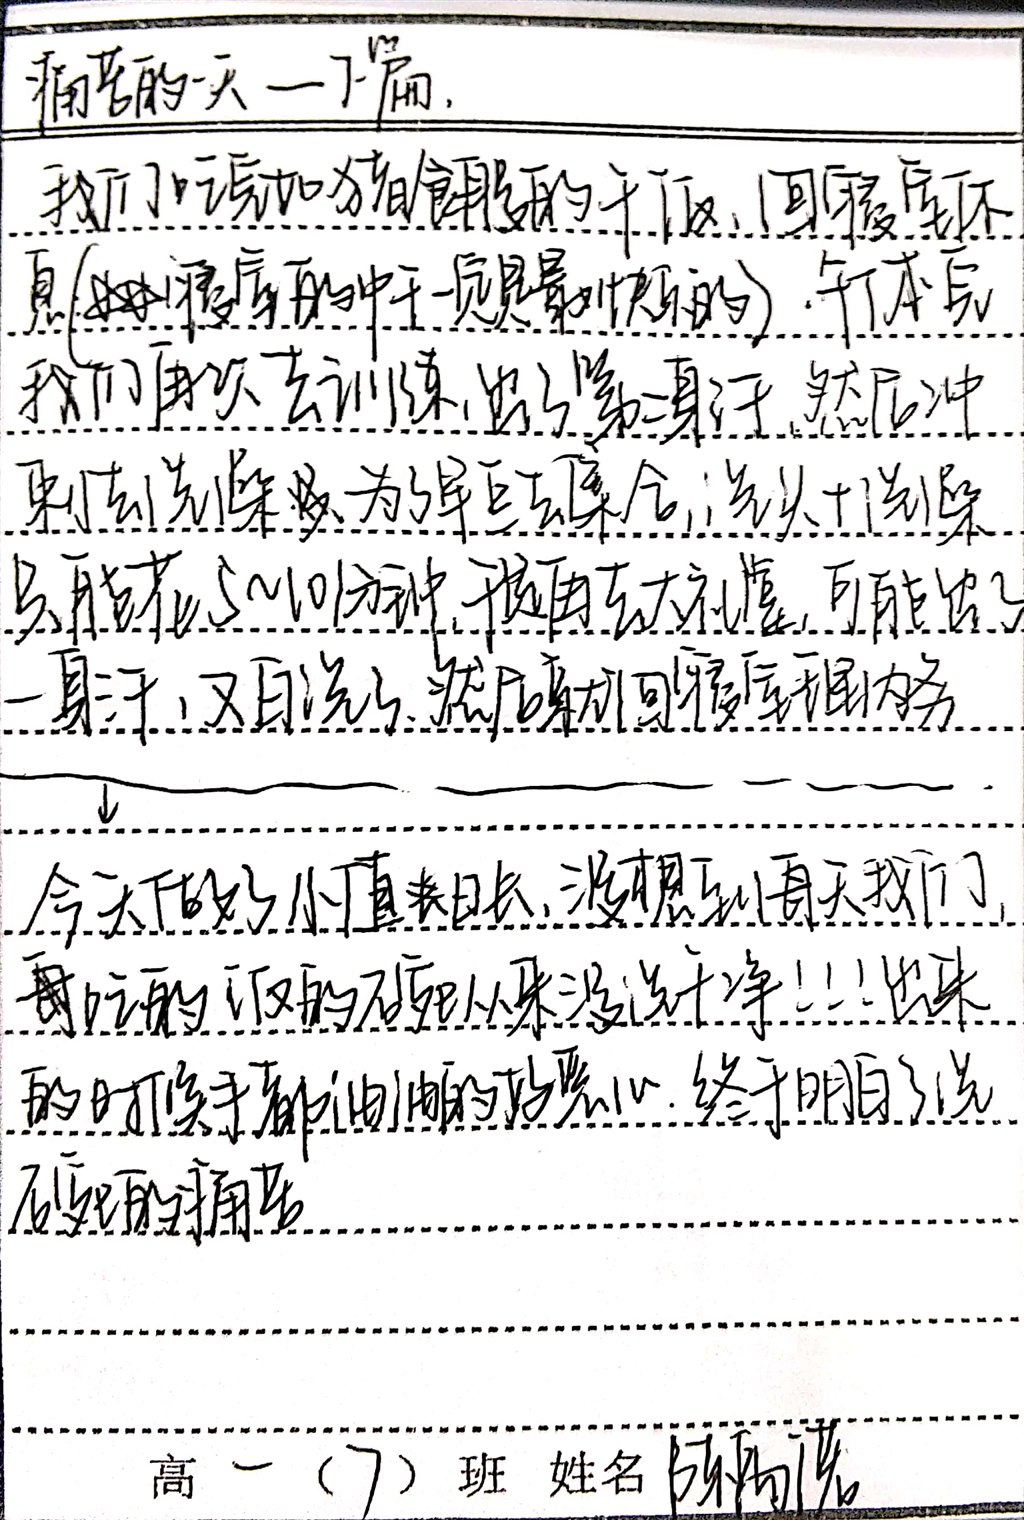 痛苦的一天 — 下篇.
我们吃完如猪食般的午饭,回寝室休
息(寝室的中午一定是最快乐的).午休完
我们再次去训练,出了第二身汗,然后冲
刺去洗澡 为了早点去集合,洗头+洗澡
只能花5~10分钟,接着再去大礼堂,可能出了
一身汗,又白洗了.然后就回寝室理内务
↓
今天做了小值日长,没想到每天我们
吃的饭的碗从来没洗干净!!!出来
的时候手都油油的好恶心.终于明白了洗
碗的痛苦
高一(7)班 姓名 陈